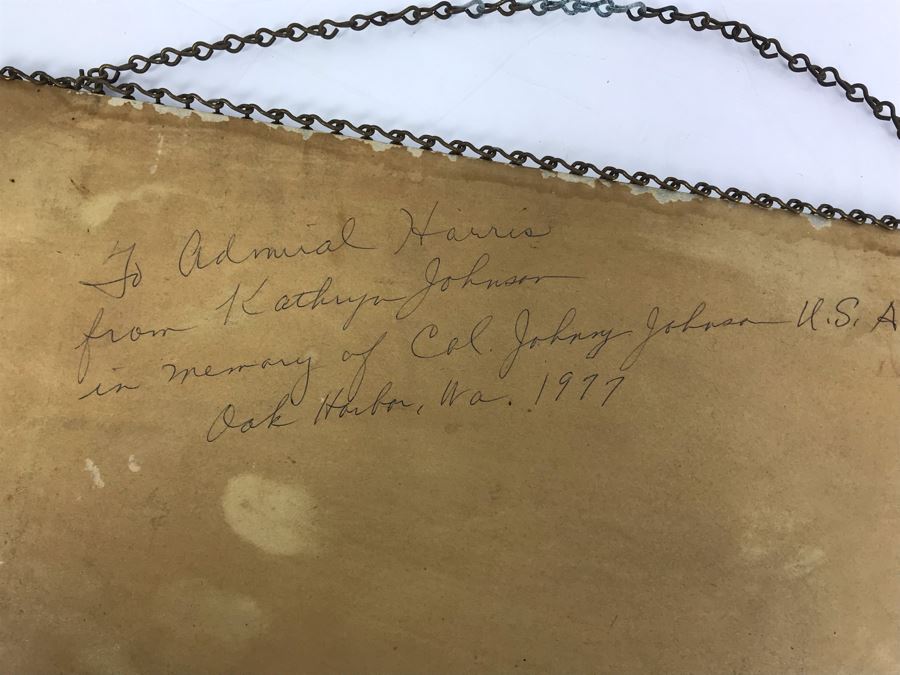 To Admiral Harris
from Kathryn Johnson
in memory of Col. Johnny Johnson U.S.A
Oak Harbor, Wa. 1977